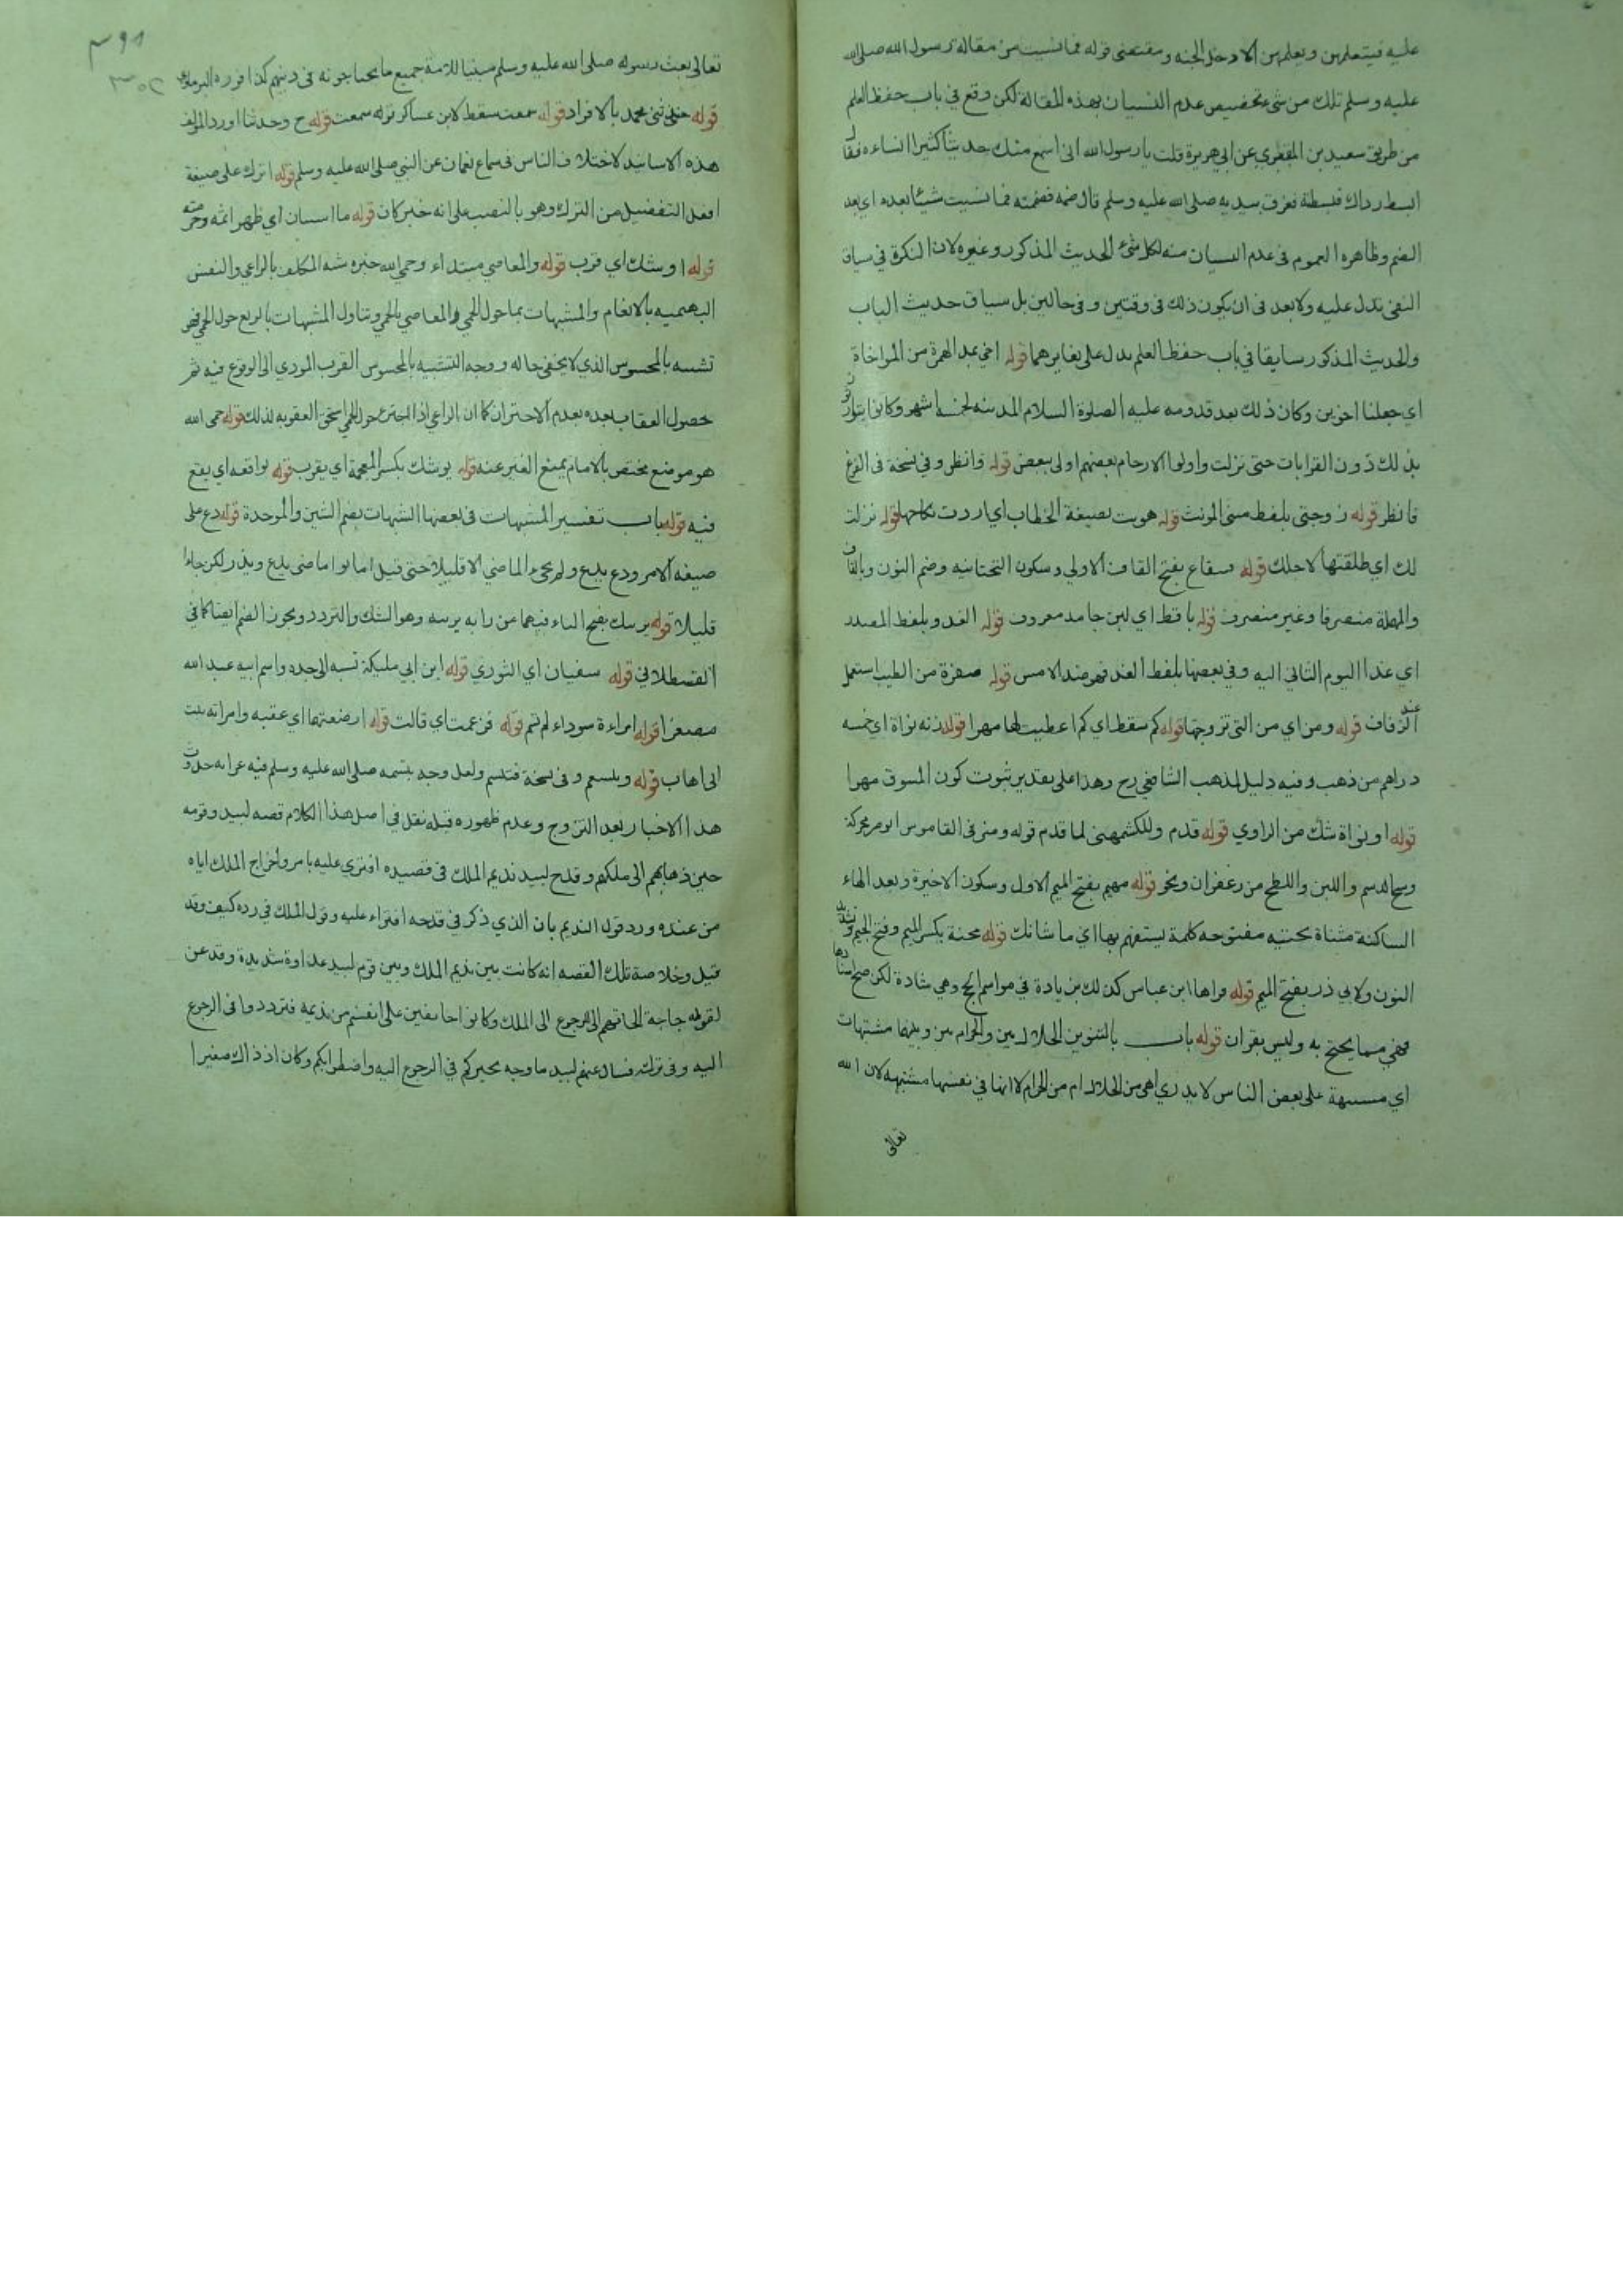 عليه فيتعلمهن ويعلمهن الا دخل الجنه ومقتضى قوله فما نسيت من مقالة رسول الله صلى الله
عليه وسلم تلك من شيء تخصيص عدم النسيان بهذه المقالة لكن وقع في باب حفظ العلم
من طريق سعيد بن المقبري عن ابي هريرة قلت يا رسول الله اني اسمع منك حديثا كثيرا انساه فقال
ابسط رداك فبسطته فغرف بيديه صلى الله عليه وسلم قال ضمه فضممته فما نسيت شيئا بعده اي بعد
الضم وظاهره العموم في عدم النسيان منه لكل شيء الحديث المذكور وغيره لان النكرة في سياق
النفي تدل عليه ولا بعد في ان يكون ذلك في وقتين وفي حالين بل سياق حديث الباب
والحديث المذكور سابقا في باب حفظ العلم يدل على تغايرهما قوله اخي بمد الهمزة من المواخاة
اي جعلنا اخوين وكان ذلك بعد قدومه عليه الصلوة السلام المدينه لخمسة اشهر وكانوا يتوارثون
بذلك دون القرابات حتى نزلت واولوا الارحام بعضهم اولى ببعض قوله وانظر وفي نسخة في الفرع
فانظر قوله زوجتي بلفظ مثنى المونث قوله هويت بصيغة الخطاب اي اردت نكاحها قوله نزلت
لك اي طلقتها لاجلك قوله قينقاع بفتح القاف الاولى وسكون التحتانيه وضم النون وبالقاف
والمهملة منصرفا وغير منصرف قوله باقط اي لبن جامد معروف قوله الغدو بلفظ المصدر
اي غدا اليوم الثاني اليه وفي بعضها بلفظ الغد فهو ضد الامس قوله صفرة من الطيب استعمل
عند الزفاف قوله ومن اي من التي تزوجتها قوله كم سقط اي كم اعطيت لها مهرا قوله زنه نواة اي خمسه
دراهم من ذهب وفيه دليل لمذهب الشافعي رح وهذا على تقدير ثبوت كون المسوق مهرا
قوله او نواة شك من الراوي قوله قدم وللكشمهني لما قدم قوله ومن في القاموس الوضر محركة
وسخ الدسم واللبن واللطخ من زعفران ونحو قوله مهيم بفتح الميم الاول وسكون الاخيرة وبعد الهاء
الساكنة مثناة تحتيه مفتوحه كلمة يستفهم بها اي ما شانك قوله مجنة بكسر الميم وفتح الجيم وتشديد
النون ولابي ذر بفتح الميم قوله قراها ابن عباس كذلك بزيادة في مواسم الحج وهي شاذة لكن صح اسنادها
فهي مما يحتج به وليس بقران قوله باب بالتنوين الحلال بين والحرام بين وبينهما مشتبهات
اي مشتبهة على بعض الناس لا يدري اهي من الحلال ام من الحرام لا انها في نفسها مشتبهه لان الله
تعالى
تعالى بعث رسوله صلى الله عليه وسلم مبينا للامة جميع ما يحتاجونه في دينهم كذا قرره البرماوي
قوله حدثني محمد بالافراد قوله سمعت سقط لابن عساكر قوله سمعت قوله ح وحدثنا اورد المولف
هذه الاسانيد لاختلاف الناس في سماع نعمان عن النبي صلى الله عليه وسلم قوله اترك على صيغة
افعل التفضيل من الترك وهو بالنصب على انه خبر كان قوله ما استبان اي ظهر اثمه وحرمته
قوله اوشك اي قرب قوله والمعاصي مبتداء وحمى الله خبره شبه المكلف بالراعي والنفس
البهيميه بالانعام والمشبهات بما حول الحمى والمعاصي بالحمى وتناول المشبهات بالرتع حول الحمى فهو
تشبيه بالمحسوس الذي لا يخفى حاله ووجه التشبيه بالمحسوس القرب المودي الى الوقوع فيه ثم
حصول العقاب بعده بعدم الاحتراز كما ان الراعي اذا اجترء حول الحمى استحق العقوبه لذلك قوله حمى الله
هو موضع مختص بالامام يمنع الغير عنه قوله يوشك بكسر المعجمة اي يقرب قوله يواقعه اي يقع
فيه قوله باب تفسير المشبهات في بعضها الشبهات بضم الشين والموحدة قوله دع على
صيغه الامر ودع يدع ولم يجيء الماضي الا قليلا حتى قيل اماتوا ماضي يدع ويذر لكن جاءا
قليلا قوله يريبك بفتح الياء فيهما من رابه يريبه وهو الشك والتردد ويجوز الضم ايضا كما في
القسطلاني قوله سفيان اي الثوري قوله ابن ابي مليكة نسبه الى جده واسم ابيه عبد الله
مصغرا قوله امراءة سوداء لم تسم قوله فزعمت اي قالت قوله ارضعتهما اي عقبه وامراته بنت
ابي اهاب قوله وتبسم وفي نسخة فتبسم ولعل وجه تبسمه صلى الله عليه وسلم فيه غرابه حدوث
هذا الاخبار بعد التزوج وعدم ظهوره قبله نقل في اصل هذا الكلام قصه لبيد وقومه
حين ذهابهم الى ملكهم وقدح لبيد نديم الملك في قصيده افترى عليه بامر واخراج الملك اياه
من عنده ورد قول النديم بان الذي ذكر في قدحه افتراء عليه وقول الملك في رده كيف وقد
قيل وخلاصة تلك القصه انه كانت بين نديم الملك وبين قوم لبيد عداوة شديدة وقد عن
لقومه حاجة الجاتهم الى الرجوع الى الملك وكانوا خائفين على انفسهم من نديمه فترددوا في الرجوع
اليه وفي تركه فسال عنهم لبيد ما وجه تحيركم في الرجوع اليه واضطرابكم وكان اذ ذاك صغيرا